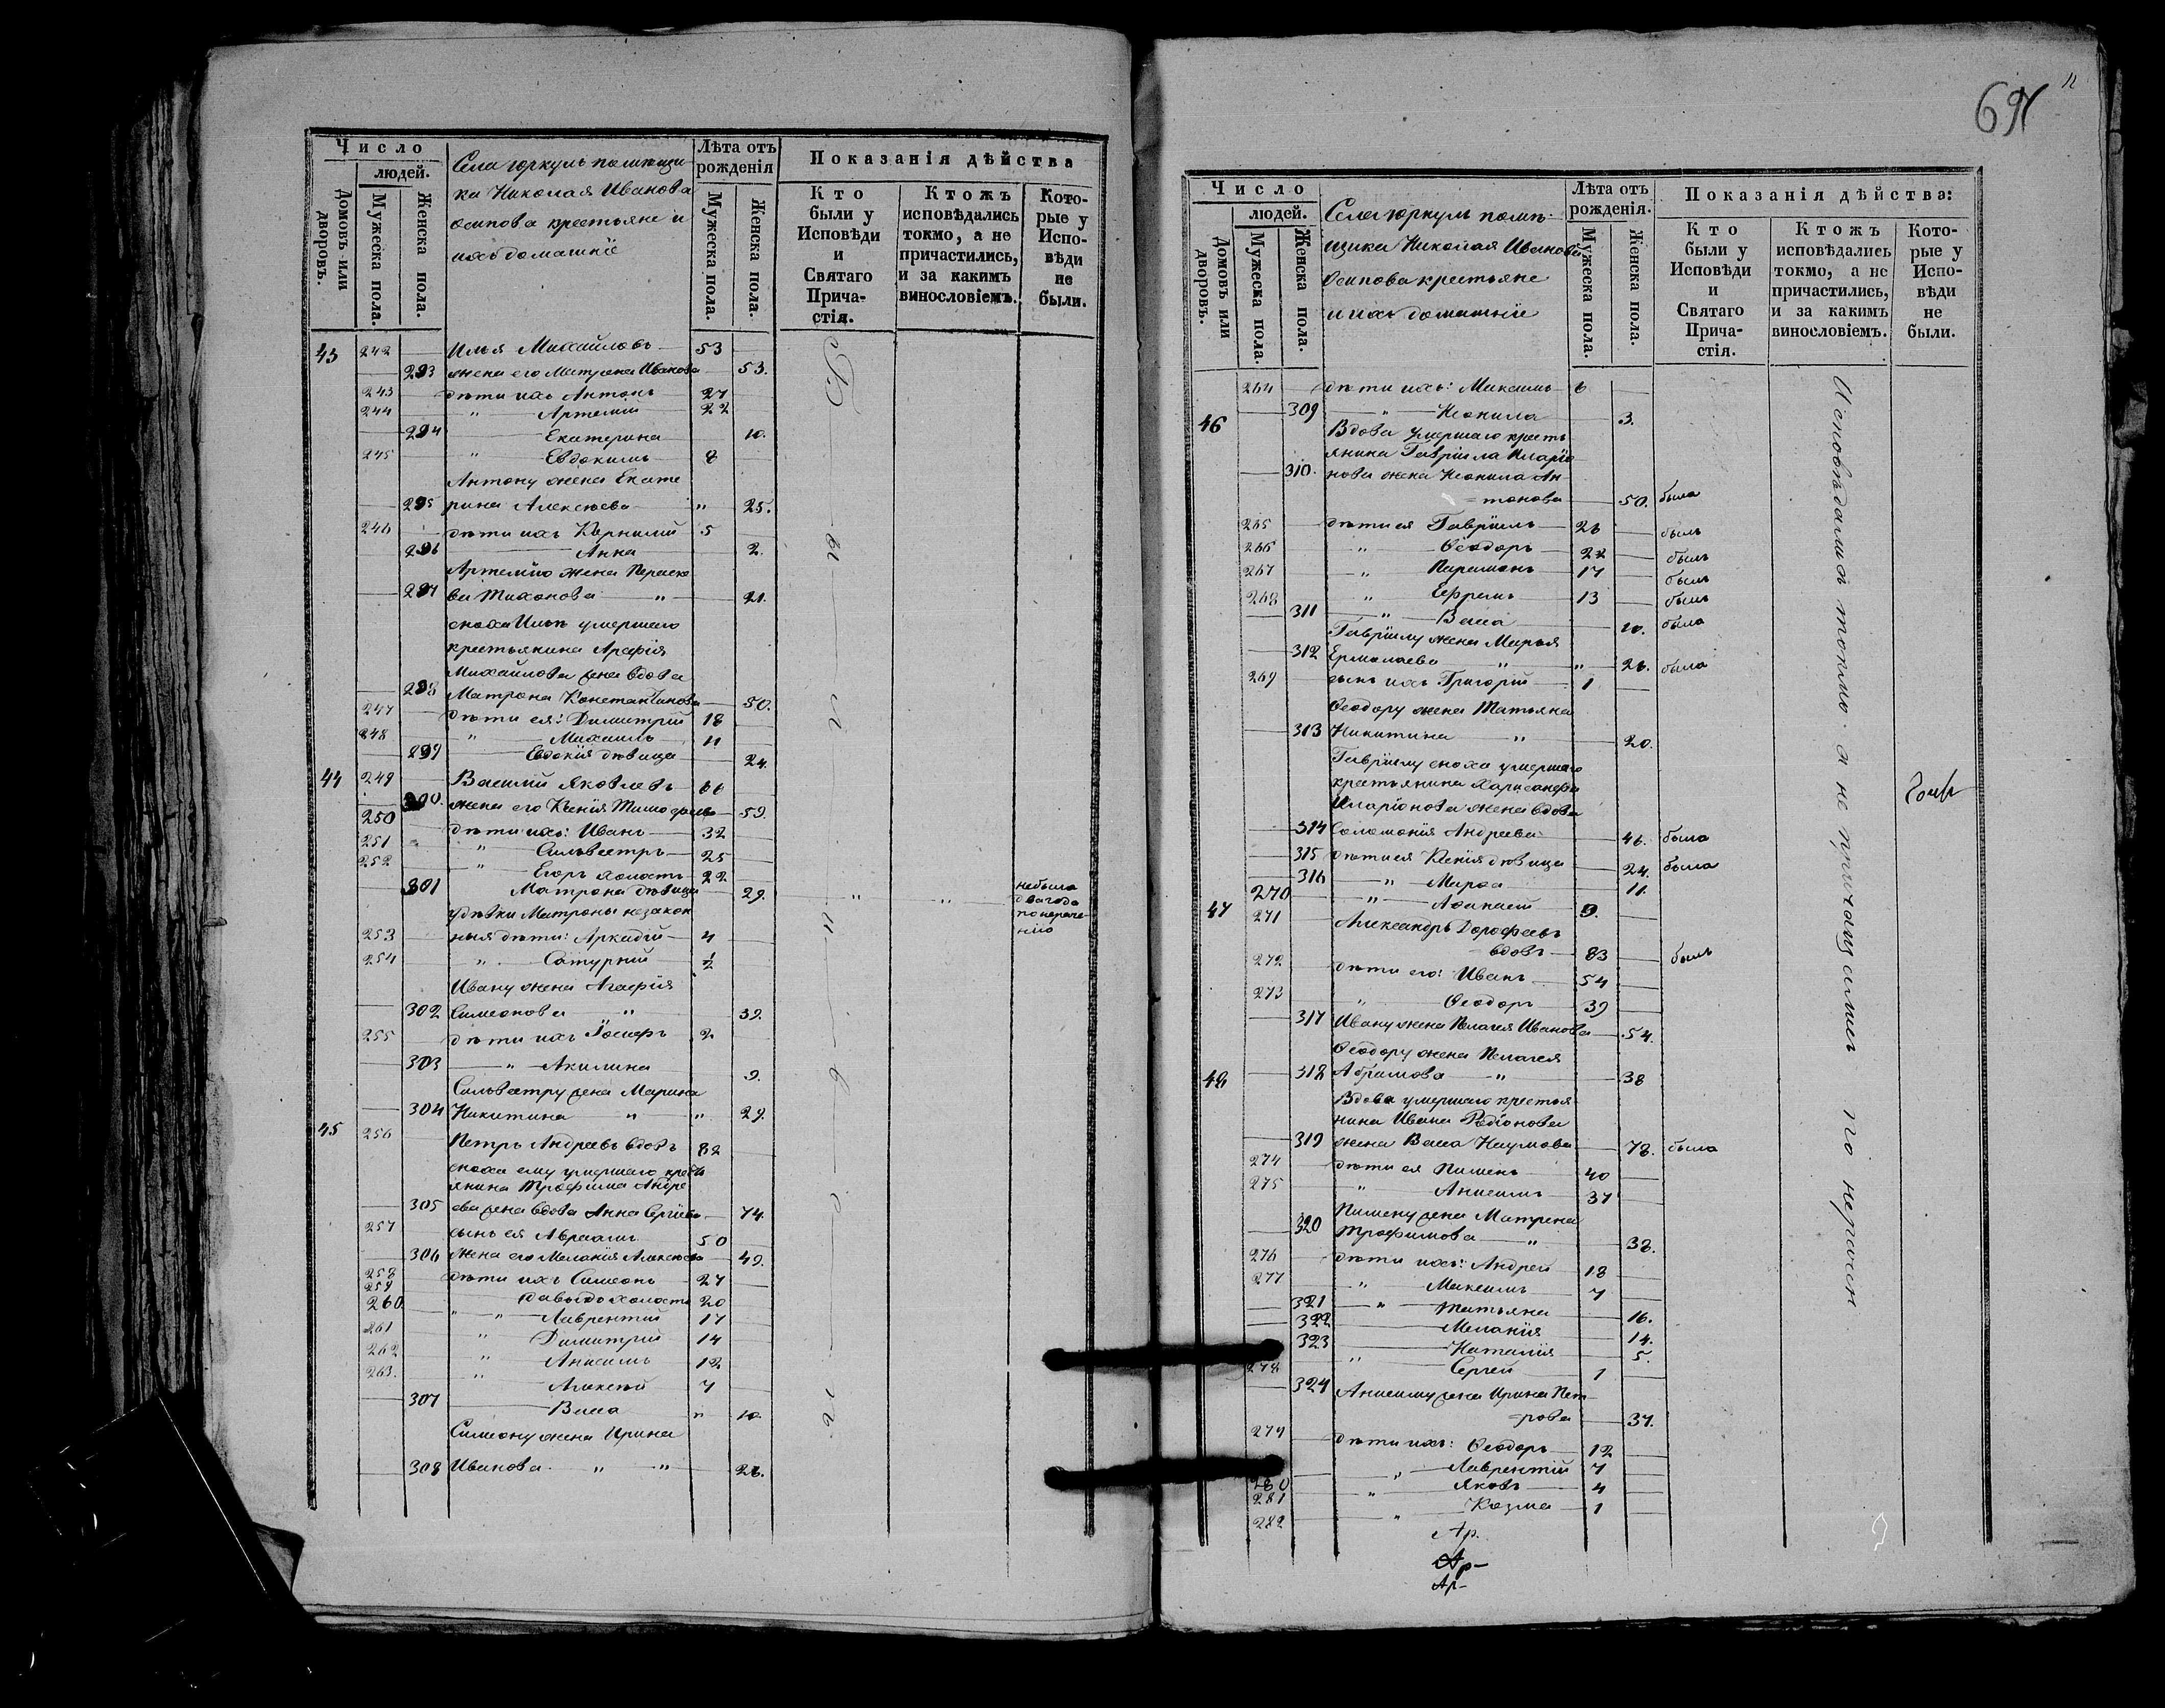 Число
людей.
Домовъ или дворовъ.
Мужеска пола.
Женска пола.
Села Юркуль помѣщи
ка Николая Иванова
Осипова крестьяне и
ихъ домашніе
Лѣта отъ рожденія
Мужеска пола.
Женска пола.
Показанія дѣйства
Кто были у Исповѣди и Святаго Прича-стія.
Ктожъ исповѣдались токмо, а не причастились, и за какимъ винословіемъ.
Кото-рые у Испо-вѣди не были.
43 242 Илья Михайловъ 53
293 жена его Матрона Иванова 53.
243 дѣти ихъ Антонъ 27
244 " Артемій 22
294 Екатерина 10.
245 " Евдокимъ 8
Антону жена Екате
295 рина Алексѣева " 25.
246 дѣти ихъ Корнилий 5
296 Анна 2.
Артемію жена Параске
297 ва Тихонова " 21.
сноха Ильи умершаго
крестьянина
Михайлова жена вдова
298 Матрона Константинова 50.
247 дѣти ея: Димитрий 18
248 " Михаилъ 11
299 Евдокія дѣвица 24.
44 249 Василий Яковлевъ 61
300. жена его Ксенія Тимофеева 59.
250 дѣти ихъ: Иванъ 32
251 " Сильвестръ 25
252 " Егоръ холостъ 22
301 Матрона дѣвица 29. " " не была два года по нераче-нію
у дѣвки Матроны незакон
253 ныя дѣти: Аркадій 4
254 " Сатурній ½
Ивану жена Агафія
302 Симеонова " 39.
255 дѣти ихъ Іосифъ 2
303 " Акилина 9.
Сильвестру жена Марина
304 Никитина " " 29.
45 256 Петръ Андреевъ вдовъ 82
сноха ему умершаго кресть
янина Трофима Андре
305 ева жена вдова Анна Сергіева 74.
257 сынъ ея Авраамъ 50
306 жена его Меланія Алексѣева 49.
258 дѣти ихъ Симеонъ 27
259 Давыдъ холостъ 20
260 " " Лаврентий 17
261 " Димитрий 14
262 " Анисимъ 12
263. " Алексѣй 7
307 Васса " 10.
Симеону жена Ирина
308 Иванова " " 26.
Число
людей.
Домовъ или дворовъ.
Мужеска пола.
Женска пола.
Села Юркуль помѣ-
щика Николая Иванова
Осипова крестьяне
и ихъ домашніе
Лѣта отъ рожденія.
Мужеска пола.
Женска пола.
Показанія дѣйства:
Кто были у Исповѣди и Святаго Прича-стія.
Ктожъ исповѣдались токмо, а не причастились, и за какимъ винословіемъ.
Кото-рые у Испо-вѣди не были.
264 дѣти ихъ: Максимъ 6
309 " Неонила 3.
46 Вдова умершаго кресть
янина Гавріила Иларіо
310. нова жена Неонила Ан-
тонова 50. была
265 дѣти ея Гавріилъ 26 былъ
266 " Ѳеодоръ 22 былъ
267 " Парамонъ 17 былъ
268 " Ефремъ 13 былъ
311 " Васса 10. была
Гавріилу жена Марья
312 Ермолаева " " 26. была
269 сынъ ихъ Григорій 1
Ѳеодору жена Татьяна
313 Никитина " 20.
Гавріилу сноха умершаго
крестьянина Харисанфа
Иларіонова жена вдова
314 Соломонія Андреева 46. была
315 дѣти ея Ксенія дѣвица 24. была
316 " Марѳа 11.
270 " Аѳанасій 9.
47 271 Александръ Дорофеевъ
вдовъ 83 былъ
272 дѣти его: Иванъ 54
273 " Ѳеодоръ 39
317 Ивану жена Пелагея Иванова 54.
Ѳеодору жена Пелагея
318 Абрамова " 38
48 Вдова умершаго крестья
нина Ивана Родіонова
319 жена Васса Наумова 78. была
274 дѣти ея Пименъ 40
275 " Анисимъ 37
Пимену жена Матрена
320 Трофимова " 38.
276 дѣти ихъ: Андрей 18
277 " Максимъ 7
321 " Татьяна 16.
322 Меланія 14.
323 " Наталія 5.
278 Сергей 1
324 Анисиму жена Ирина Пет-
рова 37.
279 дѣти ихъ: Ѳеодоръ 12
280 " Лаврентій 7
281 " Яковъ 4
282 " Козма 1
Ар.
Ар-
Ар-
Исповѣдались токмо а не причащались по нерачен